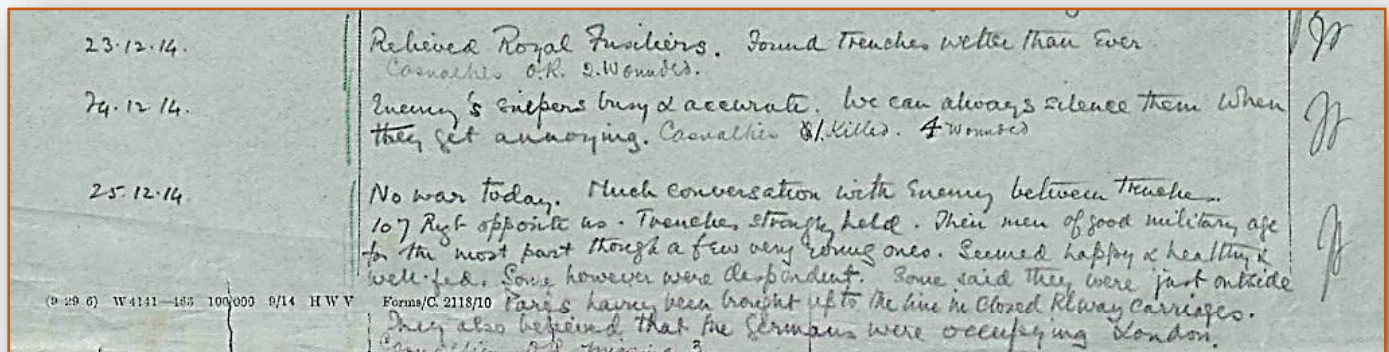 23.12.14. Relieved Royal Fusiliers. Found Trenches wetter than Ever
Casualties O.R. 2. Wounded.
24.12.14. Enemy's snipers busy & accurate. We can always silence them when
they get annoying. Casualties 1. Killed. 4 Wounded
25.12.14. No war today. Much conversation with Enemy between Trenches.
107 Regt opposite us. Trenches strongly held. Their men of good military age
for the most part though a few very young ones. Seemed happy & healthy &
well-fed. Some however were despondent. Some said they were just outside
(9 29 6) W 4141—463 100,000 9/14 H W V Forms/C. 2118/10 Paris having been brought up to the line in Closed Rlway Carriages.
They also believed that the Germans were occupying London.
Casualties O.R. Missing 3